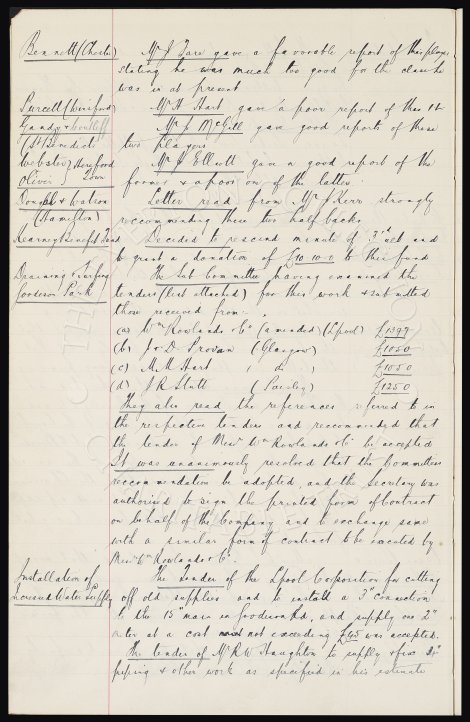 Bennett (Chester) Mr J Fare gave a favorable report of this player
stating he was much too good for the class he
was in at present
Purcell (Winsford) Mr H Hart gave a poor report of this
Gandy & Mr J McGill gave good reports of these
(St Benedicts) two players
Webster Hereford Mr J Elliott gave a good report of the
Oliver Town former & a poor on of the latter.
Dougal & Watson Letter read from Mr J Kerr strongly
(Hamilton) reccommending these two half backs
Kearney Benefit Fund Decided to rescind minute of 3rd ult and
to grant a donation of £10.10.0 to this fund
Draining & Turfing The Sub Committee having examined the
Goodison Park tenders (list attached) for this work & submitted
those received from:
(a) Wm Rowlands & Co (amended) (Lpool) £1399
(b) J & D Provan (Glasgow) £1050
(c) M. M Hart ( do ) £1050
(d) J R Stutt (Paisley) £1250
They also read the references referred to in
the respective tenders and reccommended that
the tender of Messrs Wm Rowlands & Co be accepted
It was unanimously resolved that the Committees
reccommendation be adopted, and the secretary was
authorised to sign the printed form of Contract
on behalf of the Company and to exchange same
with a similar form of contract to be executed by
Messrs Wm Rowlands & Co.
Installation of The Tender of the Lpool Corporation for cutting
Increased Water Supply off old supplies and to install a 3" connection
to the 15" main in Goodison Rd, and supply one 2"
meter at a cost not exceeding £45 was accepted.
The tender of Mr R W Houghton to supply & fix
piping & other work as specified in his estimate